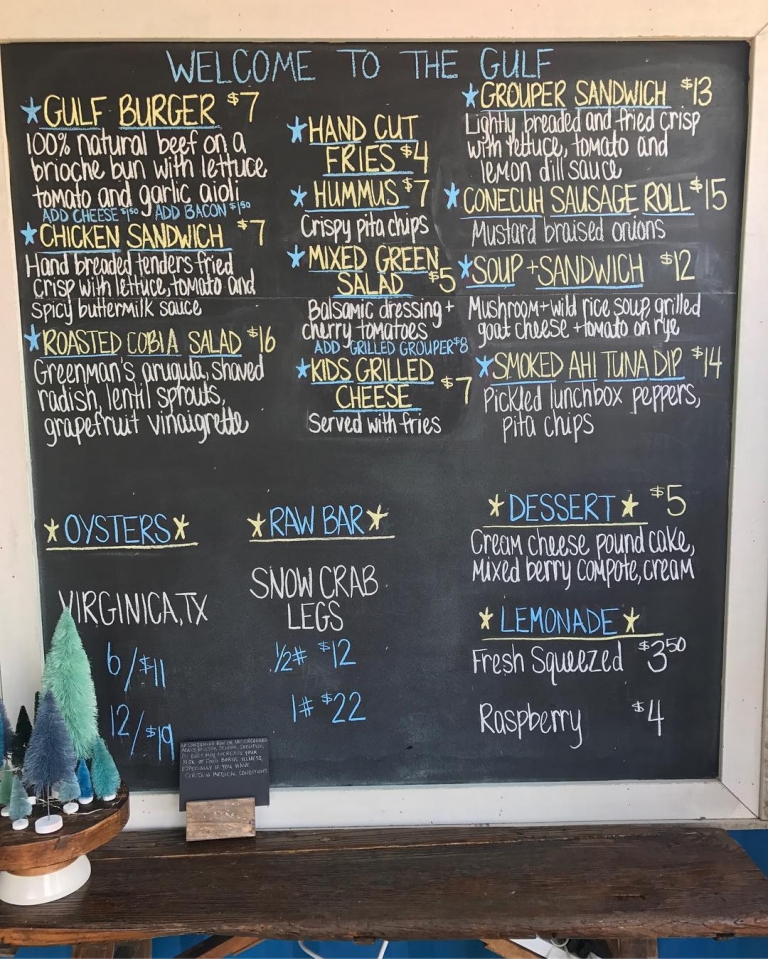 WELCOME TO THE GULF
GULF BURGER $7
100% natural beef on a
brioche bun with lettuce
tomato and garlic aioli
ADD CHEESE $1.50 ADD BACON $1.50
CHICKEN SANDWICH $7
Hand breaded tenders fried
crisp with lettuce, tomato and
spicy buttermilk sauce
ROASTED COBIA SALAD $16
Greenman's arugula, shaved
radish, lentil sprouts,
grapefruit vinaigrette
HAND CUT
FRIES $4
HUMMUS $7
Crispy pita chips
MIXED GREEN
SALAD $5
Balsamic dressing +
cherry tomatoes
ADD GRILLED GROUPER $8
KIDS GRILLED
CHEESE $7
Served with fries
GROUPER SANDWICH $13
Lightly breaded and fried crisp
with lettuce, tomato and
lemon dill sauce
CONECUH SAUSAGE ROLL $15
Mustard braised onions
SOUP + SANDWICH $12
Mushroom + wild rice soup grilled
goat cheese + tomato on rye
SMOKED AHI TUNA DIP $14
Pickled lunchbox peppers,
pita chips
OYSTERS
VIRGINICA, TX
6/$11
12/$19
RAW BAR
SNOW CRAB
LEGS
1/2# $12
1# $22
DESSERT $5
Cream cheese pound cake,
Mixed berry compote, cream
LEMONADE
Fresh Squeezed $3.50
Raspberry $4
RISK OF FOOD BORNE ILLNESS,
ESPECIALLY IF YOU HAVE
CERTAIN MEDICAL CONDITIONS